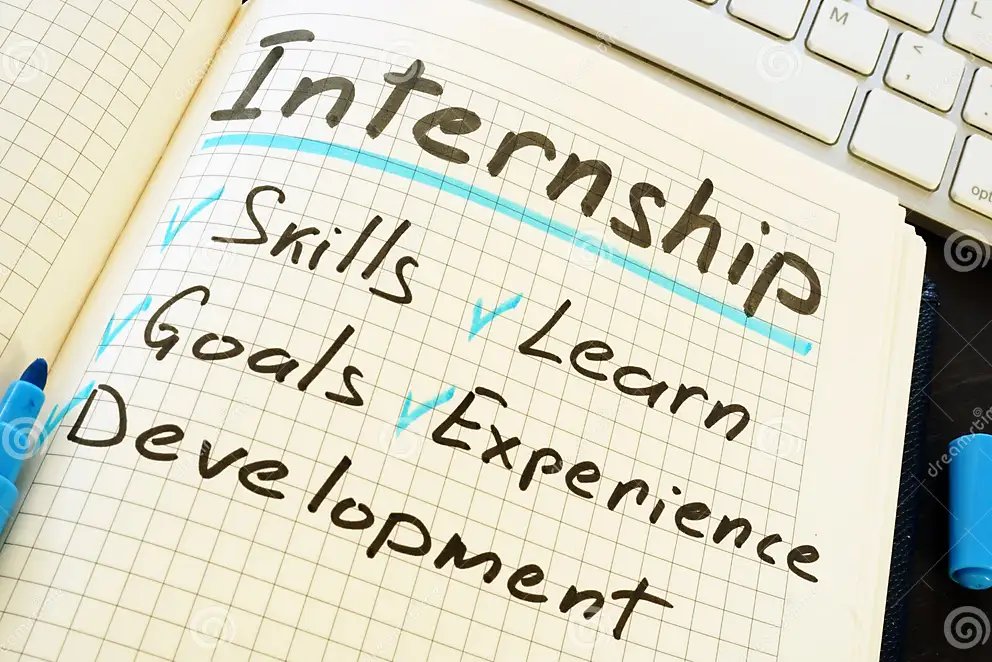 Internship
✓ Skills
✓ Learn
✓ Goals
✓ Experience
✓ Development
M
<
,
L
opt
dreamstime